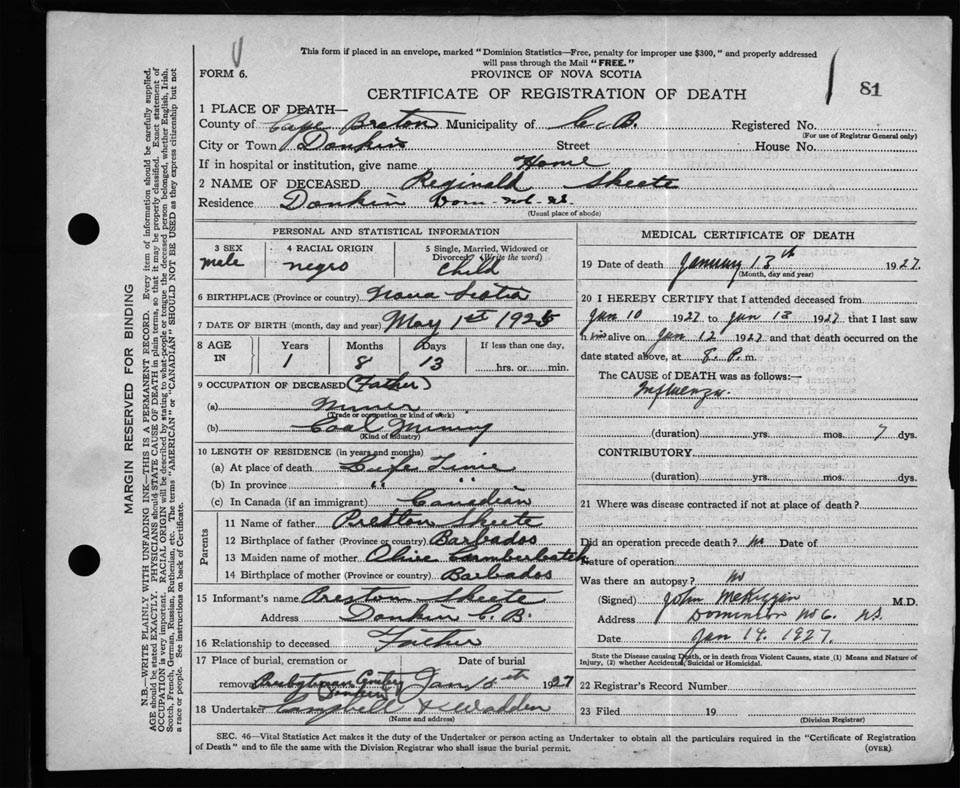 This form if placed in an envelope, marked "Dominion Statistics—Free, penalty for improper use $300," and properly addressed
will pass through the Mail "FREE."
FORM 6.
PROVINCE OF NOVA SCOTIA
CERTIFICATE OF REGISTRATION OF DEATH
81
1 PLACE OF DEATH—
County of Cape Breton Municipality of C. B. Registered No.
(For use of Registrar General only)
City or Town Donkin Street House No.
If in hospital or institution, give name Home
2 NAME OF DECEASED Reginald Skeete
Residence Donkin Dom. No. 6. N.S.
(Usual place of abode)
PERSONAL AND STATISTICAL INFORMATION
3 SEX 4 RACIAL ORIGIN 5 Single, Married, Widowed or
Divorced? (Write the word)
Male negro Child
6 BIRTHPLACE (Province or country) Nova Scotia
7 DATE OF BIRTH (month, day and year) May 1st 1925
8 AGE IN Years Months Days If less than one day,
1 8 13 hrs. or min.
9 OCCUPATION OF DECEASED (Father)
(a) Miner
(Trade or occupation or kind of work)
(b) Coal Mining
(Kind of industry)
10 LENGTH OF RESIDENCE (in years and months)
(a) At place of death Life Time
(b) In province " "
(c) In Canada (if an immigrant) Canadian
Parents
11 Name of father Preston Skeete
12 Birthplace of father (Province or country) Barbados
13 Maiden name of mother Olive Cumberbatch
14 Birthplace of mother (Province or country) Barbados
15 Informant's name Preston Skeete
Address Donkin C. B.
16 Relationship to deceased Father
17 Place of burial, cremation or Date of burial
removal Presbyterian Cemetery Donkin Jan 15th 1927
18 Undertaker Campbell & Wadden
(Name and address)
MEDICAL CERTIFICATE OF DEATH
19 Date of death January 13th 1927.
(Month, day and year)
20 I HEREBY CERTIFY that I attended deceased from
Jan 10 1927 to Jan 13 1927 that I last saw
him alive on Jan 12 1927 and that death occurred on the
date stated above, at 8. P. m.
The CAUSE OF DEATH was as follows:—
Influenza.
(duration) yrs. mos. 7 dys.
CONTRIBUTORY
(duration) yrs. mos. dys.
21 Where was disease contracted if not at place of death?
Did an operation precede death? No Date of
Nature of operation
Was there an autopsy? No
(Signed) John McKiggan M.D.
Address Dominion No 6. N.S.
Date Jan 14. 1927.
State the Disease causing Death, or in death from Violent Causes, state (1) Means and Nature of
Injury, (2) whether Accidental, Suicidal or Homicidal.
22 Registrar's Record Number
23 Filed 19
(Division Registrar)
SEC. 46—Vital Statistics Act makes it the duty of the Undertaker or person acting as Undertaker to obtain all the particulars required in the "Certificate of Registration
of Death" and to file the same with the Division Registrar who shall issue the burial permit. (OVER)
MARGIN RESERVED FOR BINDING
N.B.—WRITE PLAINLY WITH UNFADING INK—THIS IS A PERMANENT RECORD. Every item of information should be carefully supplied.
AGE should be stated EXACTLY. PHYSICIANS should STATE CAUSE OF DEATH in plain terms, so that it may be properly classified. Exact statement of
OCCUPATION is very important. RACIAL ORIGIN will be described by stating to what people or tongue the deceased person belonged, whether English, Irish,
Scotch, French, German, Russian, Ruthenian, etc. The terms "AMERICAN" or "CANADIAN" SHOULD NOT BE USED as they express citizenship but not
a race or people. See instructions on back of Certificate.